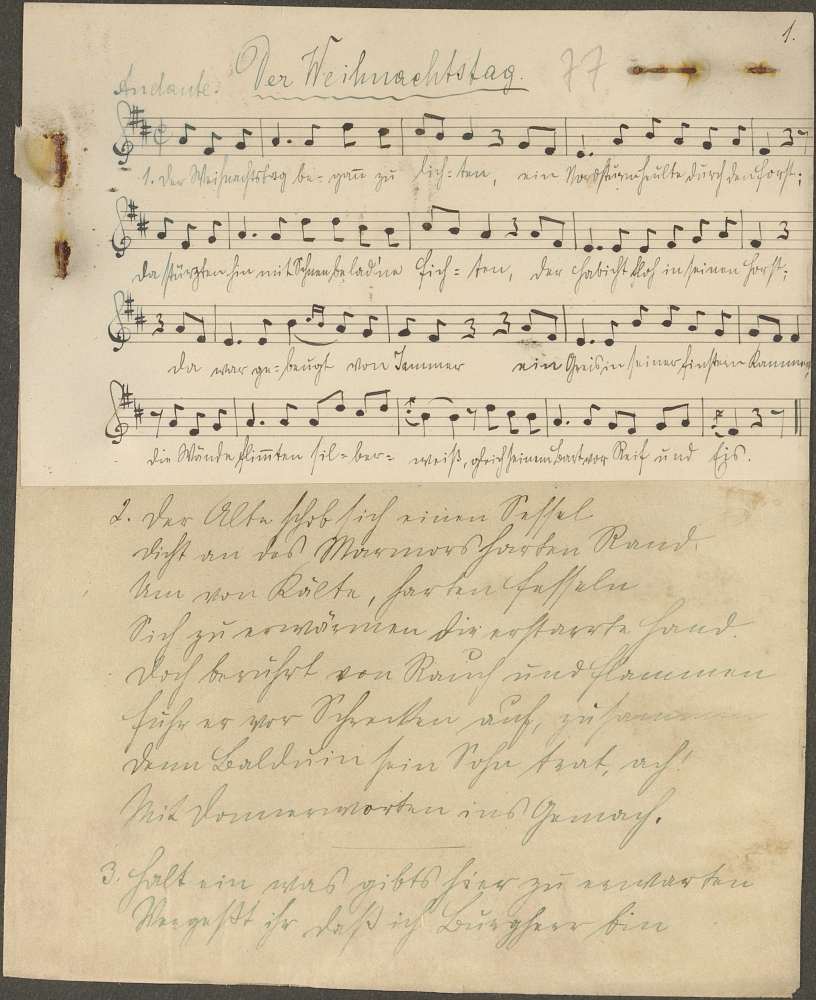 1.
Der Weihnachtstag. 77
Andante.
1. Der Weihnachtstag be-gann zu lich-ten, ein Nordsturm heulte durch den Forst;
da stürzten hin mit Schnee belad'ne Fich-ten, der Habicht floh in seinen Horst;
da war ge-beugt von Jammer ein Greis in seiner finstern Kammer,
die Wände flimmten sil-ber-weiß, gleich seinem Bart vor Reif und Eis.
2. Der Alte schob sich einen Sessel
Dicht an des Marmors harten Rand.
Um von Kälte, harten Fesseln
Sich zu erwärmen die erstarrte Hand.
Doch berührt von Rauch und Flammen
Fuhr er vor Schrecken auf, zusammen
Denn Balduin sein Sohn trat, ach!
Mit Donnerworten ins Gemach.
3. Halt ein was gibts hier zu erwarten
Vergeßt ihr daß ich Burgherr bin